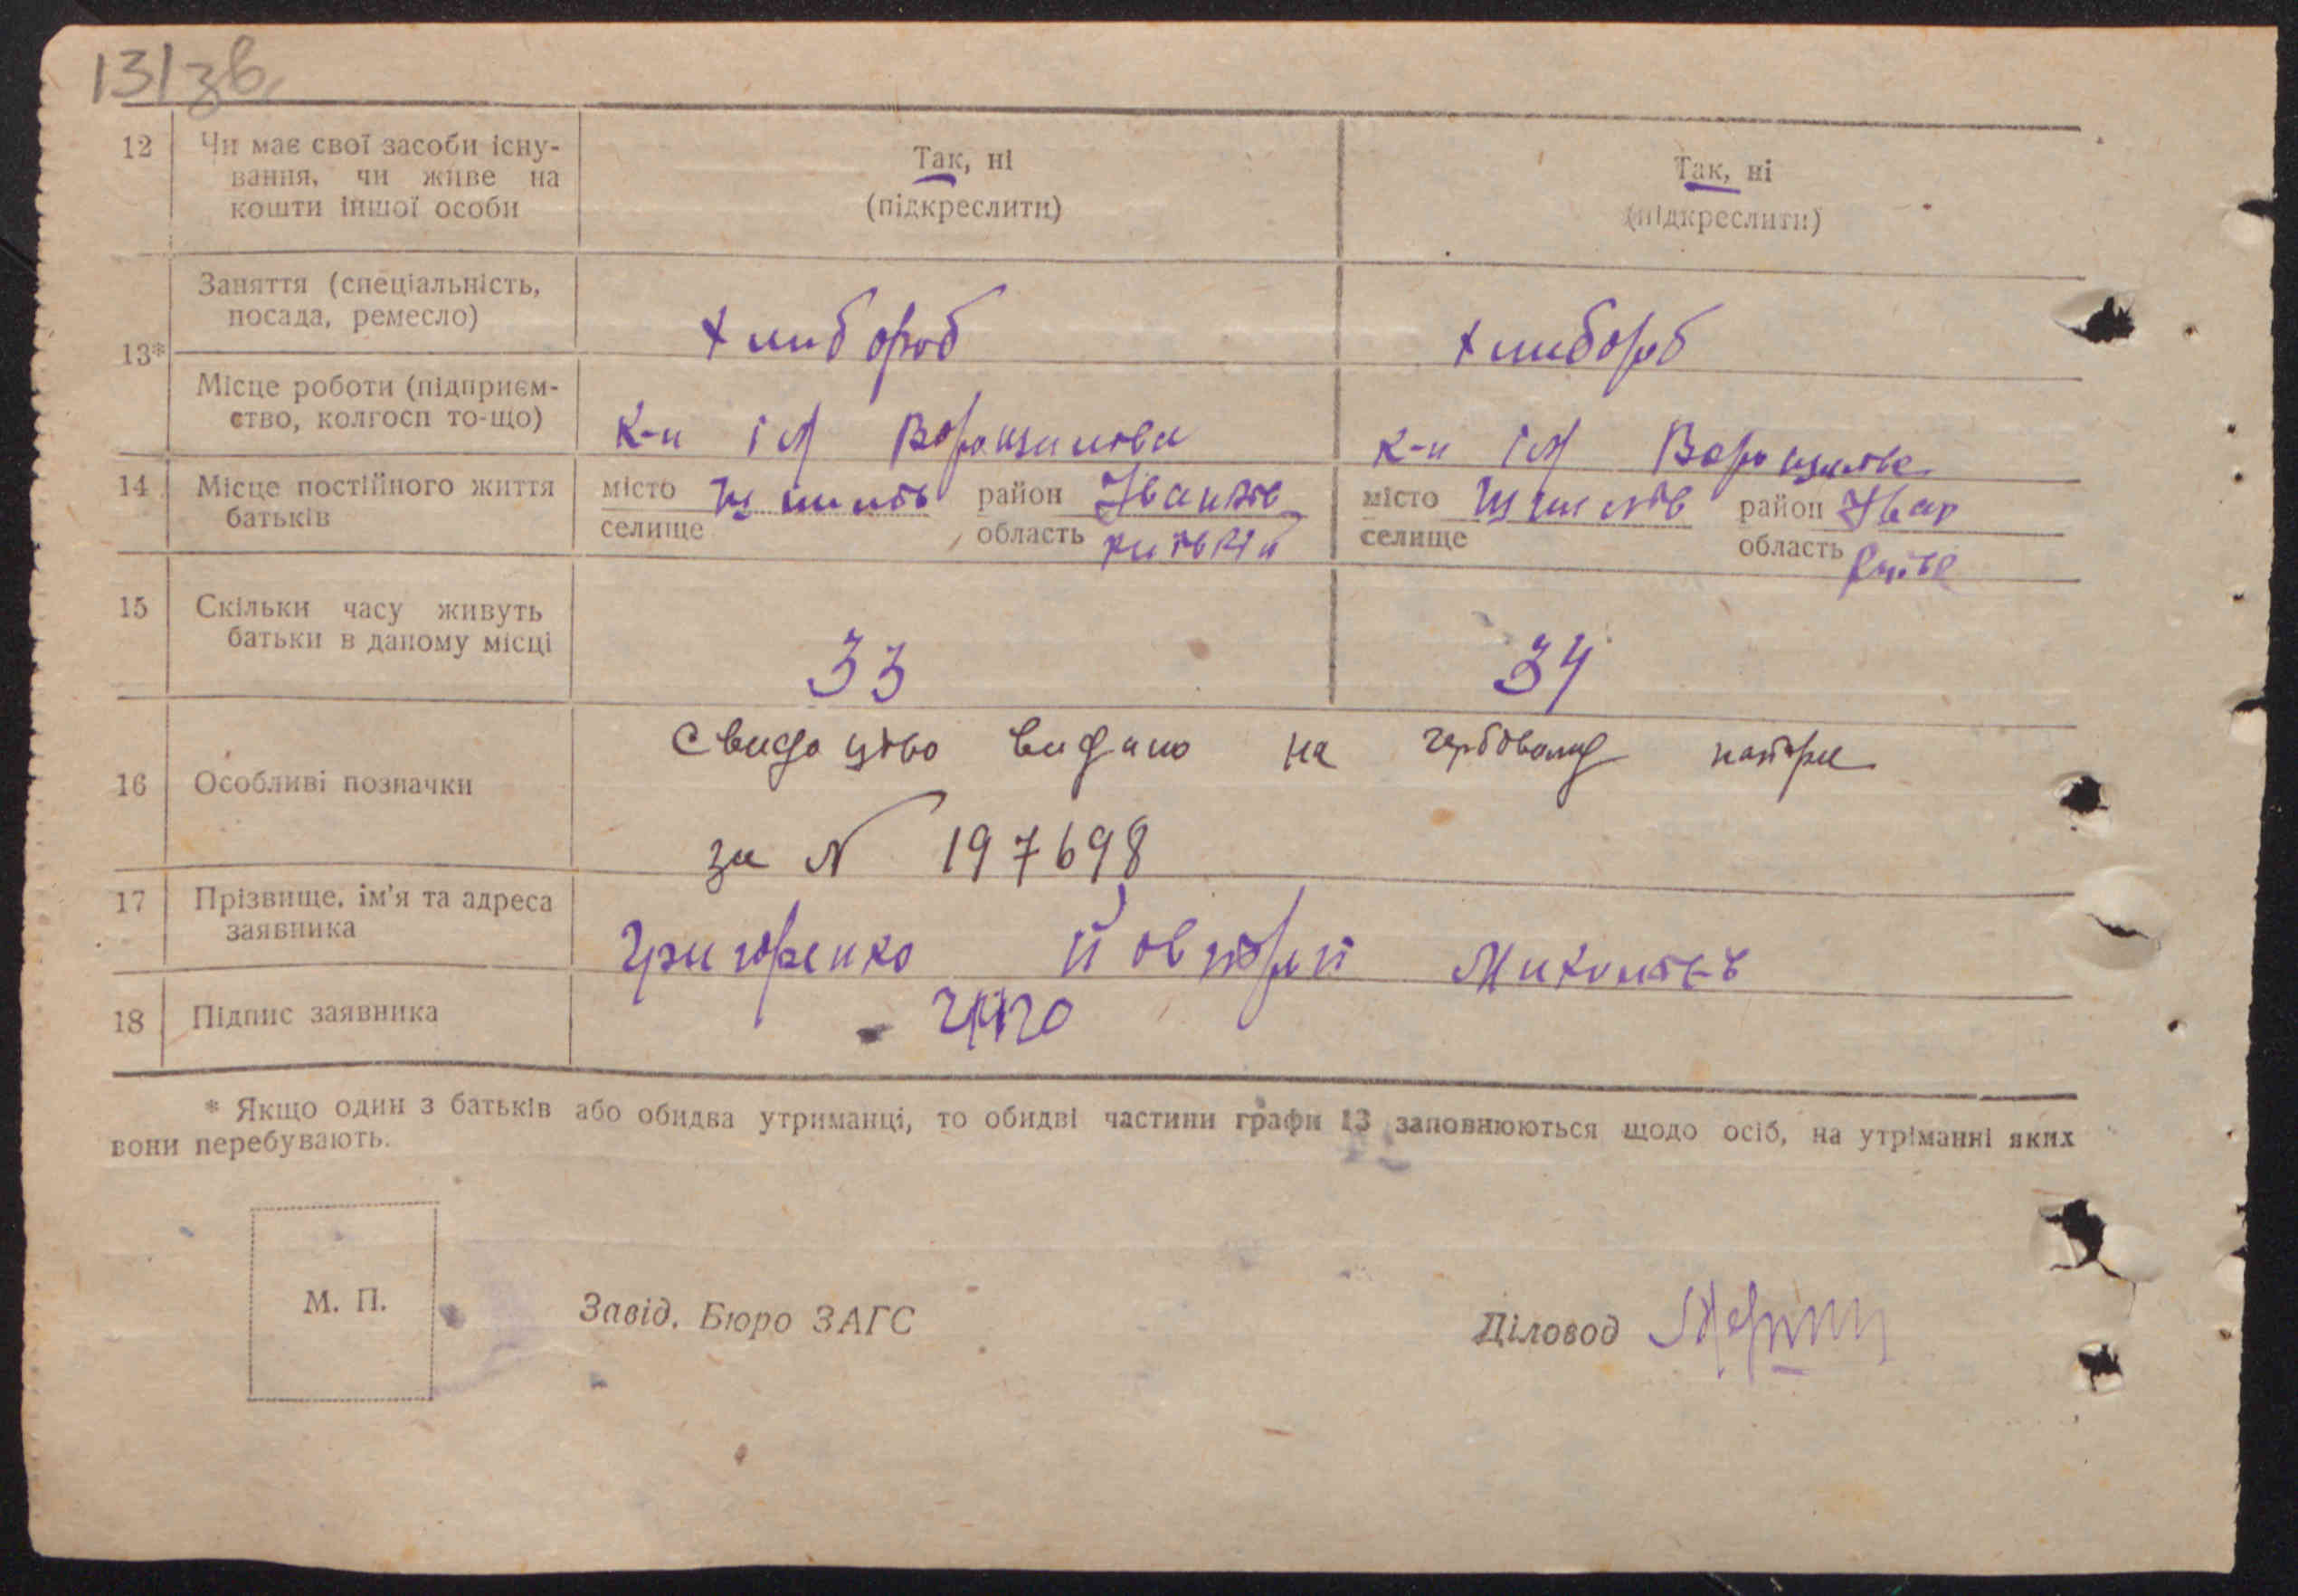 131 зв.
12 Чи має свої засоби існу-
вання, чи живе на
кошти іншої особи
Так, ні
(підкреслити)
Так, ні
(підкреслити)
13*
Заняття (спеціальність,
посада, ремесло)
хлибороб
хлибороб
Місце роботи (підприєм-
ство, колгосп то-що)
к-п ім Ворошилова
к-п ім Ворошилова
14 Місце постійного життя
батьків
місто
селище
район Іванків
область київскій
місто
селище
район Іван
область Київс
15 Скільки часу живуть
батьки в даному місці
33
34
16 Особливі позначки
Свидоцтво видано на гербовому папери
за N 197698
17 Прізвище, ім'я та адреса
заявника
Григоренко
18 Підпис заявника
* Якщо один з батьків або обидва утриманці, то обидві частини графи 13 заповнюються щодо осіб, на утріманні яких
вони перебувають.
М. П.
Завід. Бюро ЗАГС
Діловод